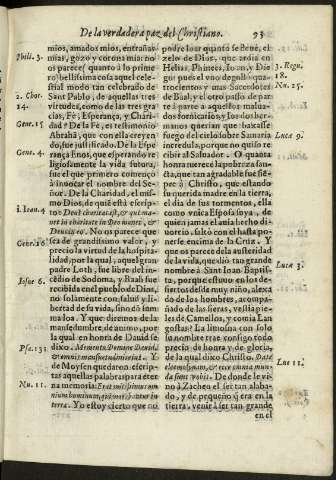 De la verdadera paz del Christiano. 93
mios, amados mios, entrañas
mias, gozo y corona mia: no
os parece (quanto à lo prime
ro) bellissima cosa aquel cele
stial modo tan celebrado de
Sant Pablo, de aquellas tres
virtudes, como de las tres gra
cias, Fè, Esperança, y Chari-
dad? De la Fè, es testimonio
Abrahã, que con ella creyen
do, fue justificado. De la Espe
rança Enos, que esperando re
ligiosamente la vida futura,
fue el que primero començò
à invocar el nombre del Se-
ñor. De la Charidad, el mis-
mo Dios, de quiẽ està escrip-
to Deus charitas est, & qui ma-
net in charitate in Deo manet, &
Deus in eo. No os parece que
sea de grandissimo valor, y
precio la virtud de la hospita
lidad, por la qual, aquel gran
padre Loth, fue libre del in-
cẽdio de Sodoma, y Raab fue
recibida en el pueblo de Dios,
no solamente con salud y li-
bertad de su vida, sino cõ im-
Y que diremos de la
mansedumbre de animo, por
la qual en honra de David se
dixo. Memento Domine David,
& omnis mansuetudinis eius. Y
de Moysen quedaron escrip-
tas aquellas palabras para eter
na memoria: Erat mitissimus om
nium hominum, qui morabantur in
terra. Yo estoy cierto que no
Phili. 3.
2. Chor.
14.
Gene. 15
Gene. 4.
1. Ioan. 4
Gene. 16
Iosue 6.
Psa. 131.
Nu. 12.
podre loar quanto se deue, el
zelo de Dios, que ardia en
Helias, Phinees, y Dios
que el vno passò de par
te à parte aquellos maluados
fornicarios, y los dos her-
manos querian que baxasse
fuego del cielo sobre Samaria
incredula, porque no quiso re
cibir al Salvador. O quanta
honra mereceesta pobreza san-
cta, que tan agradable fue siẽ-
pre à Christo, que estando
su querida madre en la tierra,
el dia de sus tormentos, ella
como vnica Esposa suya, de
quien jamas el auia hecho di
uorcio, saltò con el hasta po-
nerse encima de la Cruz. Y
que os parece de la austeridad
de la vida, que diò tan grande
nombre à Sant Ioan Baptis-
ta, porque estuuo en los de-
siertos desde muy niño, alexa
do de los hombres, acompa-
ñado de las fieras, vestia pie-
les de Camellos, y comia Lan
gostas? La limosna con solo
su nombre trae consigo todo
precio de honra y de gloria,
de la qual dixo Christo. Date
eleemosynam, & ecce omnia mun
da sunt vobis. De donde le vi-
no à Zacheo el ser tan alaba-
do, y de pequeño q̃ era en la
tierra, venir à ser tan grande
en el
3. Regu.
18.
Nu. 25.
Luca 9.
Luca 3.
Luc 11.